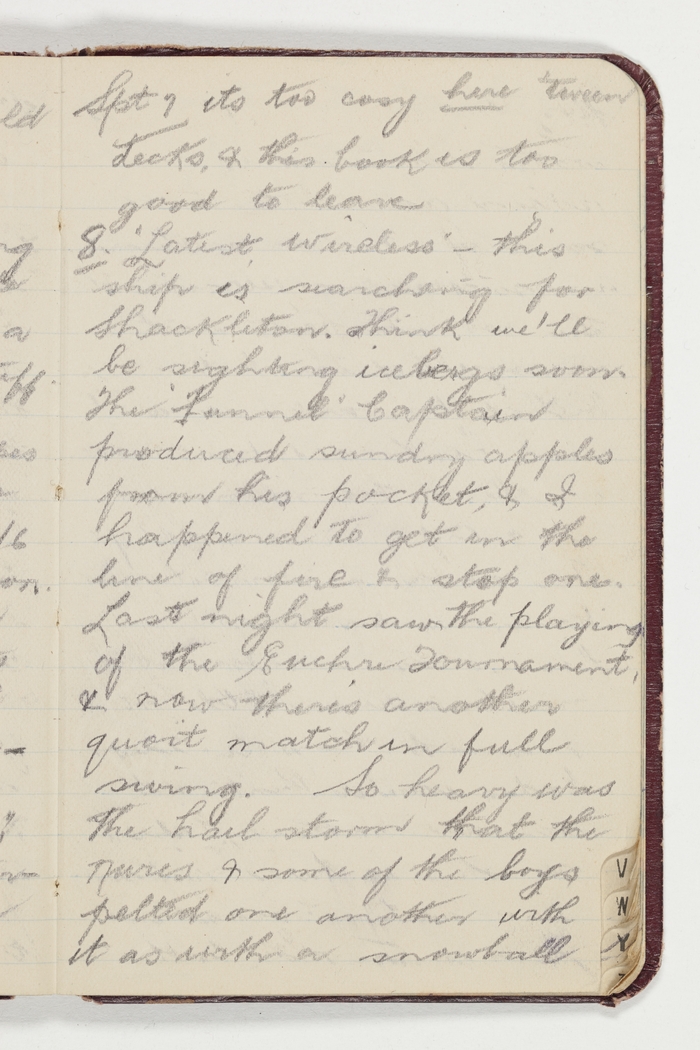 ld
ng
a
uff.
16
on.
Spt 7 its too cosy here 'tween
decks, & this book is too
good to leave
8. 'Latest wireless' – this
ship is searching for
Shackleton. Think we'll
be sighting icebergs soon.
The 'Funnel' Captain
produced sundry apples
from his pocket, & I
happened to get in the
line of fire & stop one.
Last night saw the playing
of the Euchre Tournament,
& now there's another
quoit match in full
swing. So heavy was
the hail storm that the
nurses & some of the boys
pelted one another with
it as with a snowball
V
W
X